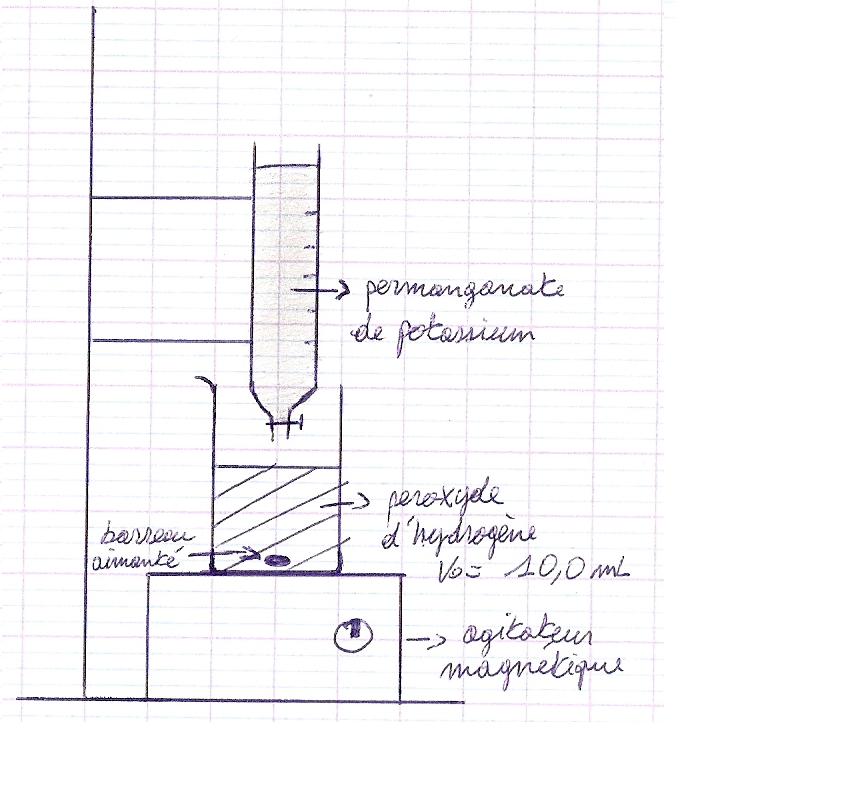 permanganate
de potassium
peroxyde
d'hydrogène
V0 = 10,0 mL
barreau
aimanté
agitateur
magnétique